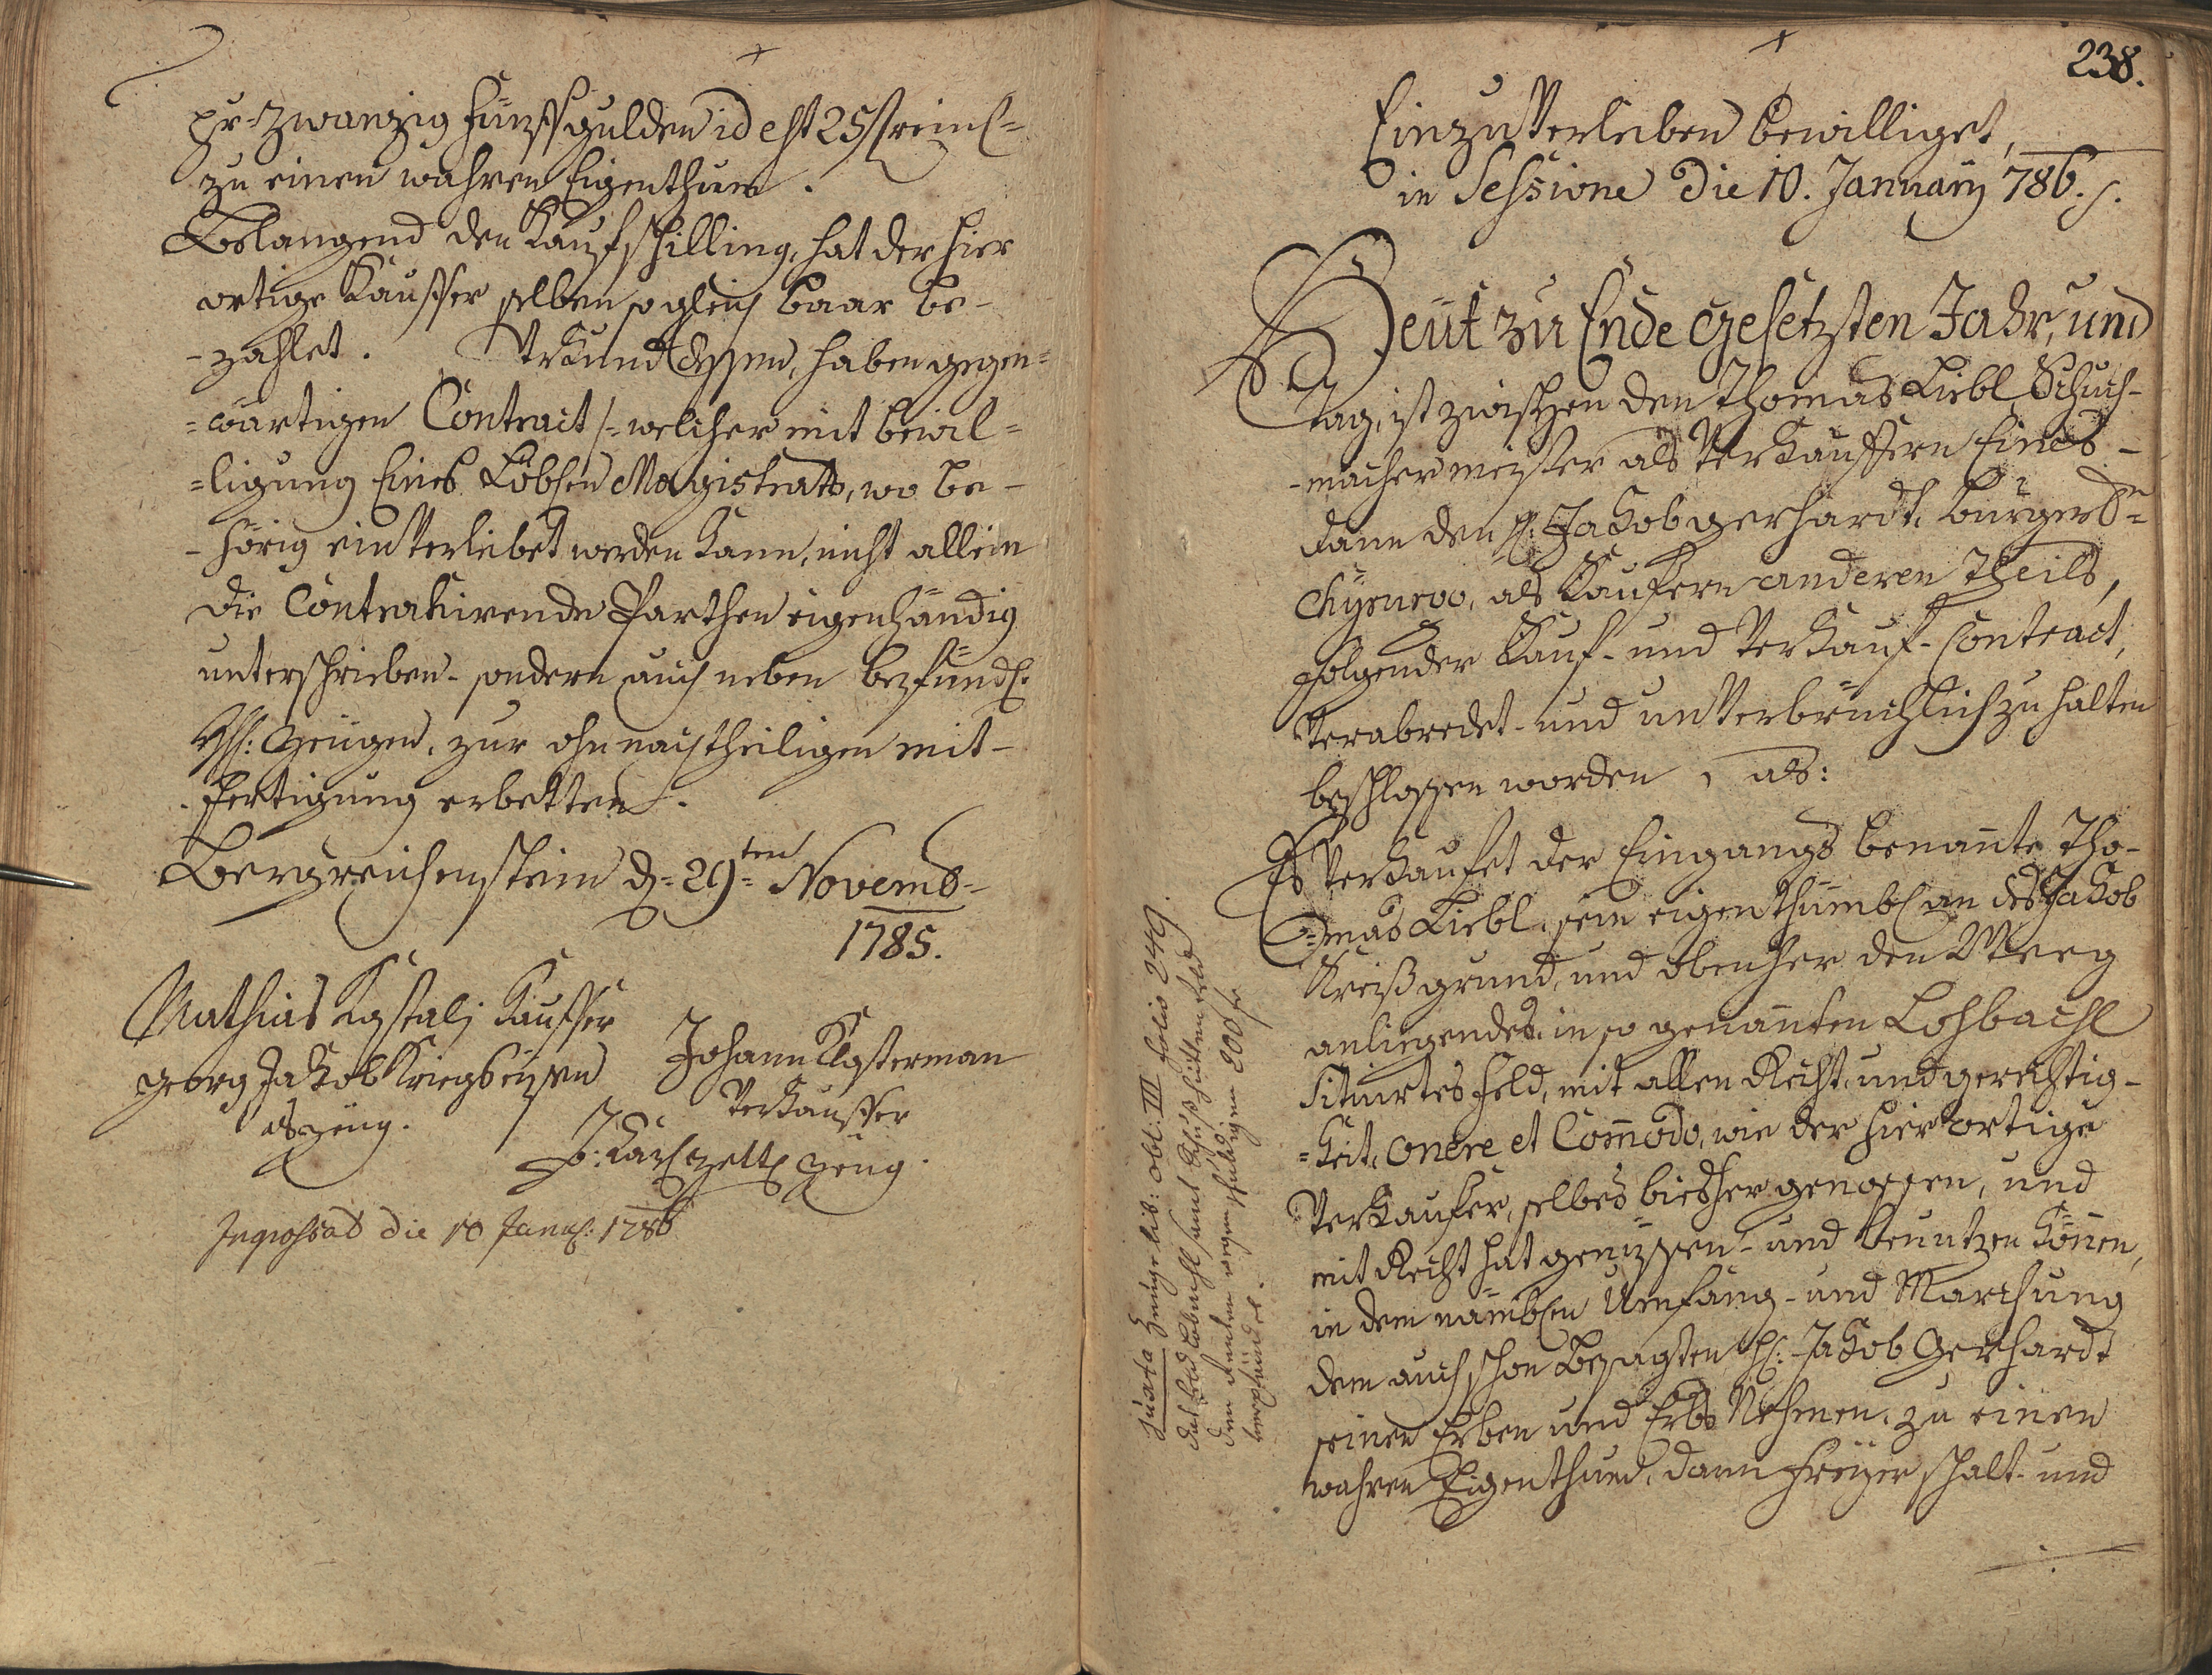 pr: zwanzig fünff gulden id est 25 f reinl=
zu einen wahren Eigenthum.
Belangend den Kaufschilling, hat der hier
ortige Kauffer selben so gleich baar be-
-zahlet. Urkund dessen, haben gegen=
=wärtigen Contract /: welcher mit bewil=
=ligung Eines Löbln Magistrats, wo be-
-hörig ein Verleibet werden kann, nicht allein
die Contrahirende Parthen eigenhändig
unterschrieben - sondern auch neben
Hh: Zeügen, zur ohnnachtheiligen mit-
-fertigung erbetten.
Bergreichenstein d= 29ten Novemb=
1785.
Mathias Kauffer
georg Jakob
als zeüg.
Johann Klosterman
Verkauffer
zeüg.
Ingrossat die 10 Janu: 1786
238.
Einzu Verleiben bewilliget,
in Sessione die 10. January 786.
Heüt zu Ende gesetzten Jahr, und
tag, ist zwischen den Thomas Liebl Schuh-
-machermeister als Verkauffern Eines-
dann den H: Jakob gerhardt, bürgerl=
als Kaufern anderen theils,
folgender Kauf- und Verkauf-Contract,
Verabredet- und unVerbrüchlich zu halten
beschlossen worden, als:
Es Verkaufet der Eingangs benannte Tho-
=mas Liebl, sein eigenthumbl an des Jakob
grund, und obenher den Weeg
anliegendes, in so genannten Lohbachl
Situirtes feld, mit allen Recht, und gerechtig-
=keit, onere et Commodo, wie der hier ortige
Verkaufer, selbes bishero genossen, und
mit Recht hat genüssen- und benutzen können,
in dem nämblen Umfang- und Marchung
dem auch schon besagten H: Jakob Gerhardt
seinen Erben und Erbs Nehmen, zu einen
wahren Eigenthum, dann freyer schalt- und
juxta lib: obl: III folio 249.
das feld Lobachl samt
den wegen schuldigen 200 fr
verpfändet.